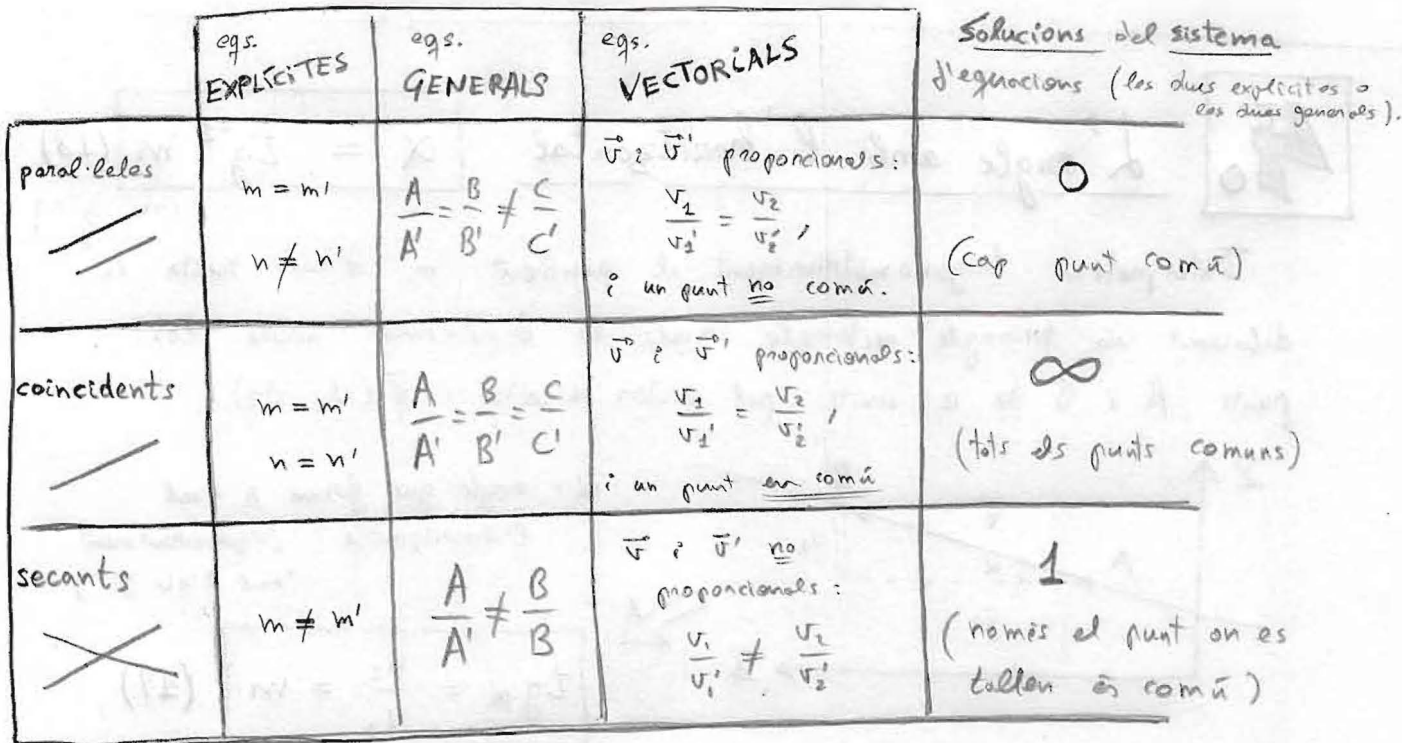 eqs.
EXPLÍCITES
eqs.
GENERALS
eqs.
VECTORIALS
Solucions del sistema
d'equacions (les dues explícites o
les dues generals).
paral·leles
m = m'
n ≠ n'
A/A' = B/B' ≠ C/C'
v⃗ i v⃗' proporcionals:
v₁/v₁' = v₂/v₂',
i un punt no comú.
0
(cap punt comú)
coincidents
m = m'
n = n'
A/A' = B/B' = C/C'
v⃗ i v⃗' proporcionals:
v₁/v₁' = v₂/v₂',
i un punt en comú
∞
(tots els punts comuns)
secants
m ≠ m'
A/A' ≠ B/B
v⃗ i v⃗' no
proporcionals:
v₁/v₁' ≠ v₂/v₂'
1
(només el punt on es
tallen és comú)